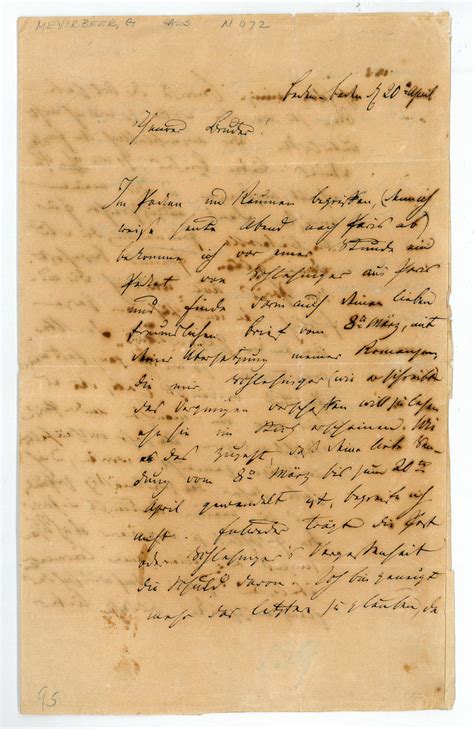 MEYERBEER, G N 072
Baden-baden d 20n April
Theurer Bruder!
Im Packen und Räumen begriffen, (denn ich
reise heute Abend nach Paris ab)
bekomme ich vor einer Stunde ein
Packet von Schlesinger aus Paris
und finde darin auch deinen lieben
freundlichen brief vom 8n März, mit
deiner Übersetzung meiner Romanzen,
die mir Schlesinger (wie er schreibt
das Vergnügen verschaffen will zu sehen
ehe sie im Stich erscheinen. Wie
das zugeht, daß deine liebe Sen-
dung vom 8n März bis zum 20n
April gewandelt ist, begreife ich
nicht. Entweder trägt die Post
oder Schlesinger's Vergessenheit
die Schuld davon. Ich bin geneigt
mehr das letztere zu glauben, da
95